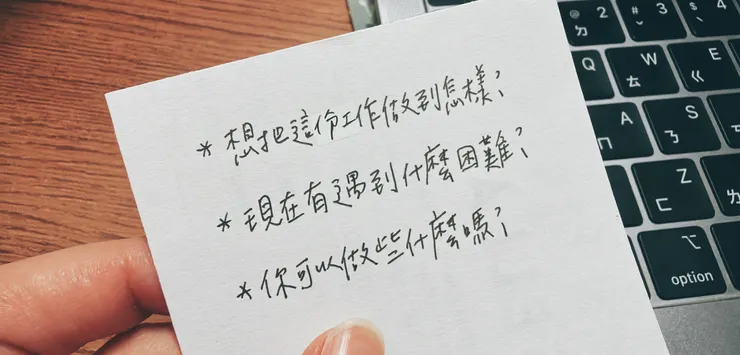 * 想把這份工作做到怎樣?
* 現在有遇到什麼困難?
* 你可以做些什麼嗎?
2 ㄉ
3 ˇ
$ 4 ˋ
Q ㄆ
W ㄊ
E ㄍ
A ㄇ
S ㄋ
Z ㄈ
option